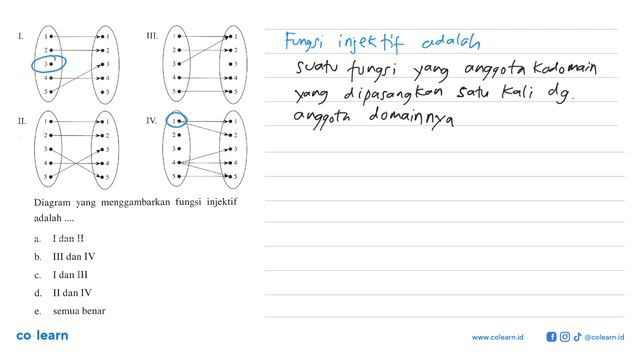 I.
1 1
2 2
3 3
4 4
5 5
III.
1 1
2 2
3 3
4 4
5 5
II.
1 1
2 2
3 3
4 4
5 5
IV.
1 1
2 2
3 3
4 4
5 5
Diagram yang menggambarkan fungsi injektif
adalah ....
a. I dan II
b. III dan IV
c. I dan III
d. II dan IV
e. semua benar
Fungsi injektif adalah
suatu fungsi yang anggota kodomain
yang dipasangkan satu kali dg.
anggota domainnya
co learn
www.colearn.id
@colearn.id